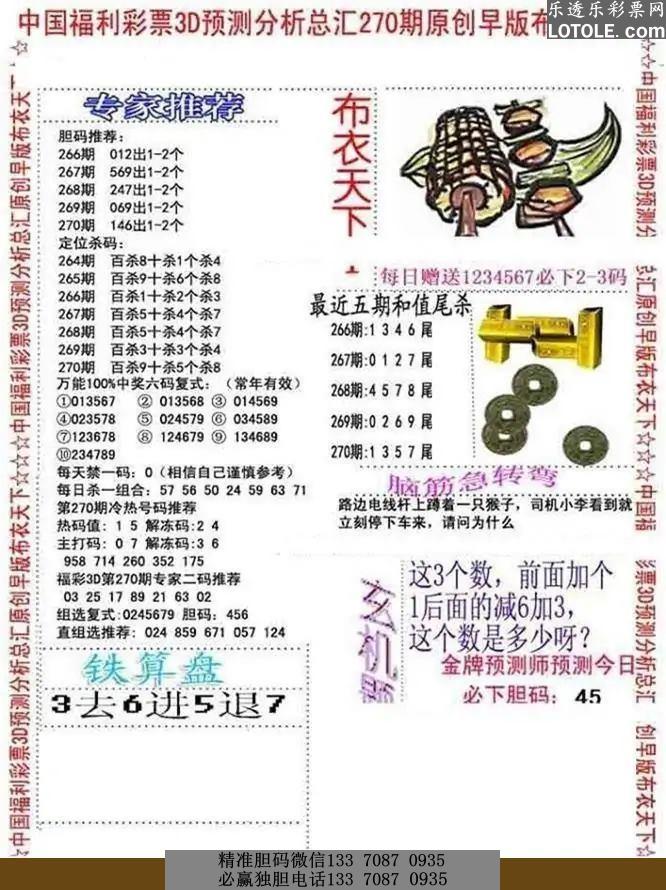 中国福利彩票3D预测分析总汇270期原创早版布
乐透乐彩票网
LOTOLE.COM
☆中国福利彩票3D预测分析总汇原创早版布衣天下☆☆☆中国福利彩票3D预测分析总汇原创早版布衣天下
专家推荐
胆码推荐:
266期 012出1-2个
267期 569出1-2个
268期 247出1-2个
269期 069出1-2个
270期 146出1-2个
定位杀码:
264期 百杀8十杀1个杀4
265期 百杀9十杀6个杀8
266期 百杀1十杀2个杀3
267期 百杀5十杀4个杀7
268期 百杀5十杀4个杀7
269期 百杀3十杀3个杀4
270期 百杀9十杀5个杀8
万能100%中奖六码复式:(常年有效)
①013567 ② 013568 ③ 014569
④023578 ⑤ 024579 ⑥ 034589
⑦123678 ⑧ 124679 ⑨ 134689
⑩234789
每天禁一码:0(相信自己谨慎参考)
每日杀一组合: 57 56 50 24 59 63 71
第270期冷热号码推荐
热码值: 1 5 解冻码: 2 4
主打码: 0 7 解冻码: 3 6
958 714 260 352 175
福彩3D第270期专家二码推荐
03 25 17 89 21 63 02
组选复式:0245679 胆码: 456
直组选推荐: 024 859 671 057 124
铁算盘
3去6进5退7
布衣天下
每日赠送1234567必下2-3码
最近五期和值尾杀
266期:1 3 4 6 尾
267期:0 1 2 7 尾
268期:4 5 7 8 尾
269期:0 2 6 9 尾
270期:1 3 5 7 尾
脑筋急转弯
路边电线杆上蹲着一只猴子,司机小李看到就
立刻停下车来,请问为什么
玄机
这3个数,前面加个
1后面的减6加3,
这个数是多少呀?
金牌预测师预测今日
必下胆码: 45
☆中国福利彩票3D预测分
总汇原创早版布衣天下☆☆☆中国福
彩票3D预测分析总汇 创早版布衣天下☆
精准胆码微信133 7087 0935
必赢独胆电话133 7087 0935